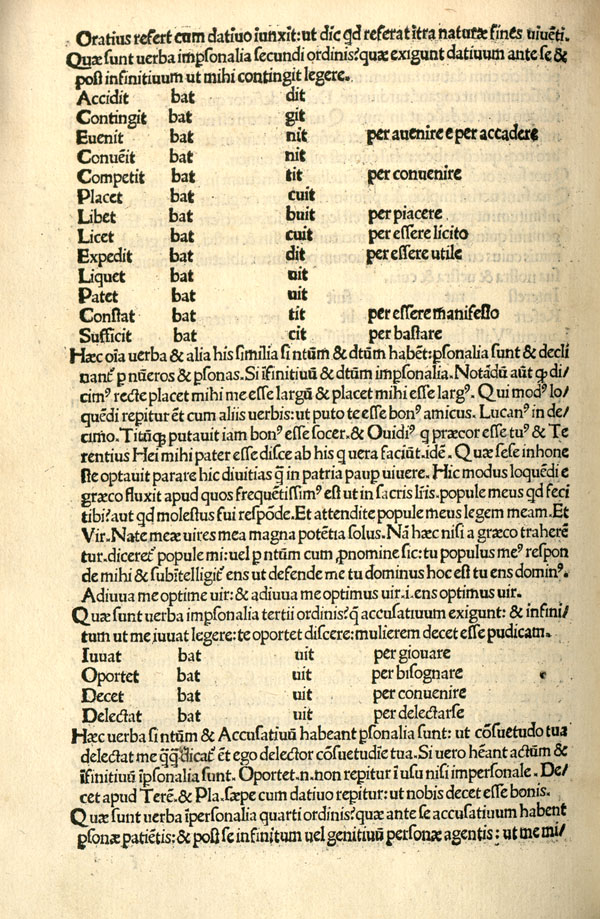 Oratius refert cum datiuo iunxit: ut dic̄ qd referat ītra naturæ fines uiuēti.
Quæ sunt uerba impsonalia secundi ordinis? quæ exigunt datiuum ante se &
post infinitiuum ut mihi contingit legere.
Accidit bat dit
Contingit bat git
Euenit bat nit per auenire e per accadere
Conuēit bat nit
Competit bat tit per conuenire
Placet bat cuit
Libet bat buit per piacere
Licet bat cuit per essere licito
Expedit bat dit per essere utile
Liquet bat uit
Patet bat uit
Constat bat tit per essere manifesto
Sufficit bat cit per bastare
Hæc oīa uerba & alia his similia si nt̄um & dt̄um habēt: psonalia sunt & decli
nantʳ p nūeros & psonas. Si īfinitiuū & dt̄um impsonalia. Notādū aūt ꝙ di/
cimꝰ recte placet mihi me esse largū & placet mihi esse largꝰ. Qui modꝰ lo/
quēdi repitur ēt cum aliis uerbis: ut puto te esse bonꝰ amicus. Lucanꝰ in de/
cimo. Titūqꝫ putauit iam bonꝰ esse socer. & Ouidiꝰ q præcor esse tuꝰ & Te
rentius Hei mihi pater esse disce ab his q uera faciūt. idē. Quæ sese inhone
ste optauit parare hic diuitias q̄ in patria paup uiuere. Hic modus loquēdi e
græco fluxit apud quos frequētissimꝰ est ut in sacris lr̄is. popule meus qd feci
tibi? aut qd molestus fui respōde. Et attendite popule meus legem meam. Et
Vir. Nate meæ uires mea magna potētia solus. Nā hæc nisi a græco traherē
tur. diceretʳ popule mi: uel p nt̄um cum ,pnomine sic: tu populus meꝰ respon
de mihi & subītelligitʳ ens ut defende me tu dominus hoc est tu ens dominꝰ.
Adiuua me optime uir: & adiuua me optimus uir. i. ens optimus uir.
Quæ sunt uerba impsonalia tertii ordinis? q̄ accusatiuum exigunt: & infini/
tum ut me iuuat legere: te oportet discere: mulierem decet esse pudicam.
Iuuat bat uit per giouare
Oportet bat uit per bisognare
Decet bat uit per conuenire
Delectat bat uit per delectarse
Hæc uerba si nt̄um & Accusatiuū habeant psonalia sunt: ut cōsuetudo tua
delectat me q̄q̄ dicatʳ ēt ego delector cōsuetudīe tua. Si uero hēant actūm &
īfinitiuū īpsonalia sunt. Oportet .n. non repitur ī usu nisi impersonale. De/
cet apud Terē. & Pla. sæpe cum datiuo repitur: ut nobis decet esse bonis.
Quæ sunt uerba īpersonalia quarti ordinis? quæ ante se accusatiuum habent
psonæ patiētis: & post se infinitum uel genitiuū personæ agentis: ut me mi/